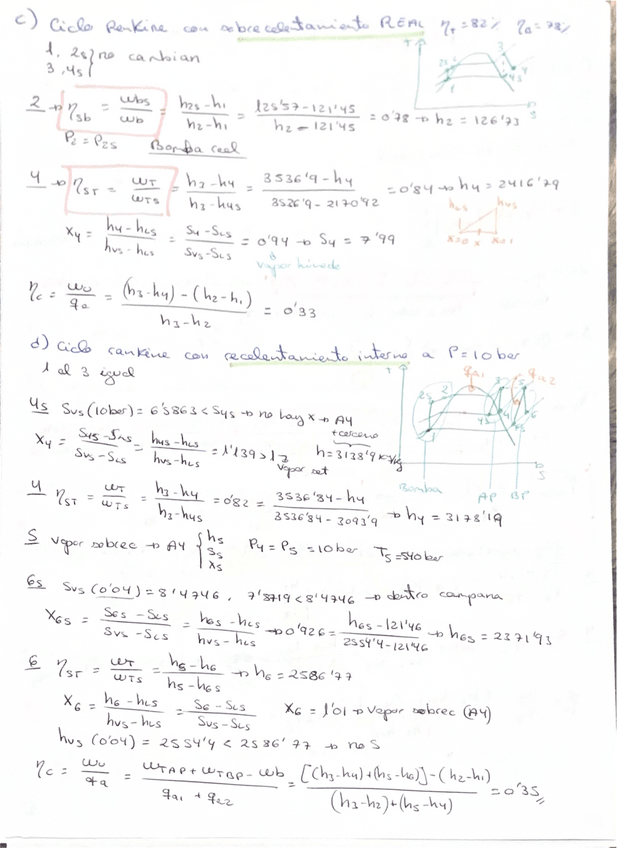 c) Ciclo Renkine con sobrecalentamiento REAL ηT = 82% ηB = 78%
1, 2s} no cambian
3, 4s
2 → ηsb = wbs/wb = (h2s - h1)/(h2 - h1) = (125'57 - 121'45)/(h2 - 121'45) = 0'78 → h2 = 126'73
P2 = P2s Bomba real
4 → ηST = wT/wTS = (h3 - h4)/(h3 - h4s) = (3536'9 - h4)/(3536'9 - 2170'92) = 0'84 → h4 = 2416'79
X4 = (h4 - hLS)/(hVS - hLS) = (S4 - SLS)/(SVS - SLS) = 0'94 → S4 = 7'99
vapor húmedo
hLS hVS
x=0 x x=1
ηc = wu/qa = ((h3 - h4) - (h2 - h1))/(h3 - h2) = 0'33
d) Ciclo rankine con recalentamiento interno a P = 10 bar
1 al 3 igual
4s SVS (10 bar) = 6'5863 < S4s → no hay x → A4
X4 = (S4s - SLS)/(SVS - SLS) = (h4s - hLS)/(hVS - hLS) = 1'139 > 1 → vapor sat
+ cercano
h = 3138'9 KJ/Kg
Bomba AP BP
4 ηST = wT/wTS = (h3 - h4)/(h3 - h4s) = 0'82 = (3536'84 - h4)/(3536'84 - 3093'9) → h4 = 3178'19
5 Vapor sobrec → A4 { h5 S5 X5 P4 = P5 = 10 bar T5 = 540 ber
6s SVS (0'04) = 8'4746, 7'8719 < 8'4746 → dentro campana
X6s = (S6s - SLS)/(SVS - SLS) = (h6s - hLS)/(hVS - hLS) → 0'926 = (h6s - 121'46)/(2554'4 - 121'46) → h6s = 2371'93
6 ηST = wT/wTS = (h5 - h6)/(h5 - h6s) → h6 = 2586'77
X6 = (h6 - hLS)/(hVS - hLS) = (S6 - SLS)/(SVS - SLS) X6 = 1'01 → Vapor sobrec (A4)
hVS (0'04) = 2554'4 < 2586'77 → no S
ηc = wu/qa = (wTAP + wTBP - wb)/(qa1 + qa2) = ([(h3 - h4) + (h5 - h6)] - (h2 - h1))/((h3 - h2) + (h5 - h4)) = 0'35